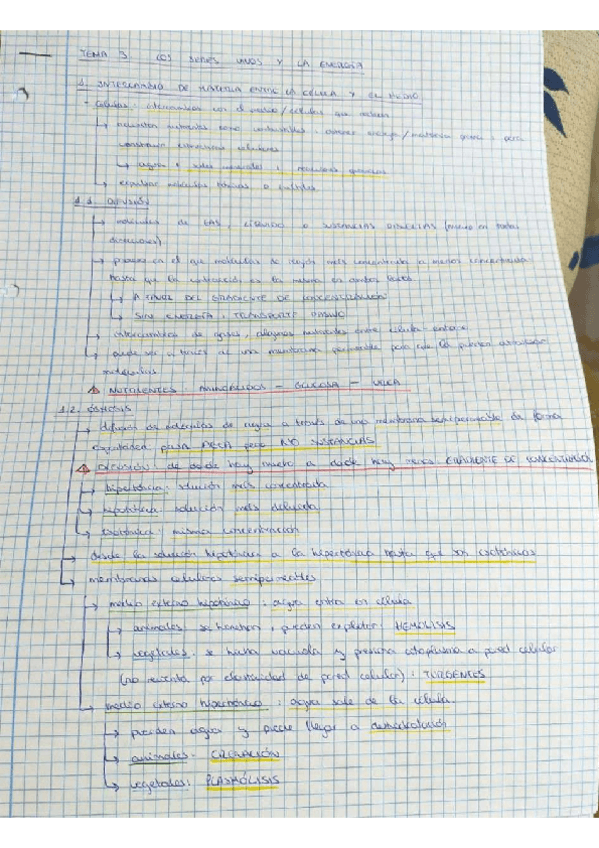 TEMA 3 LOS SERES VIVOS Y LA ENERGÍA
1. INTERCAMBIO DE MATERIA ENTRE LA CÉLULA Y EL MEDIO
- Células: intercambian con el medio / células que rodean
necesitan nutrientes como combustibles: obtener energía / materia para
construir estructuras celulares
agua + sales minerales + moléculas orgánicas
expulsar moléculas tóxicas o inútiles.
1.1. DIFUSIÓN
moléculas de GAS, LÍQUIDO o SUSTANCIAS DISUELTAS (mueve en todas
direcciones)
proceso en el que moléculas de región más concentrada a menos concentrada
hasta que la concentración es la misma en ambos lados
A TRAVÉS DEL GRADIENTE DE CONCENTRACIÓN
SIN ENERGÍA: TRANSPORTE PASIVO
intercambio de gases, algunos nutrientes entre célula - entorno
puede ser a través de una membrana permeable para que la puedan atravesar
moléculas
NUTRIENTES: AMINOÁCIDOS - GLUCOSA - UREA
1.2. ÓSMOSIS
difusión de moléculas de agua a través de una membrana semipermeable de forma
espontánea para AGUA pero NO SUSTANCIAS
DIFUSIÓN: de donde hay mucho a donde hay menos GRADIENTE DE CONCENTRACIÓN
hipertónica: solución más concentrada
hipotónica: solución más diluida
isotónica: misma concentración
desde la solución hipotónica a la hipertónica hasta que son isotónicas
membranas celulares semipermeables
medio externo hipotónico: agua entra en célula
animales: se hinchan, pueden explotar: HEMÓLISIS
vegetales: se hincha vacuola y presiona citoplasma a pared celular
(no revienta por elasticidad de pared celular): TURGENTES
medio externo hipertónico: agua sale de la célula.
pierden agua y puede llegar a deshidratación
animales: CRENACIÓN
vegetales: PLASMÓLISIS